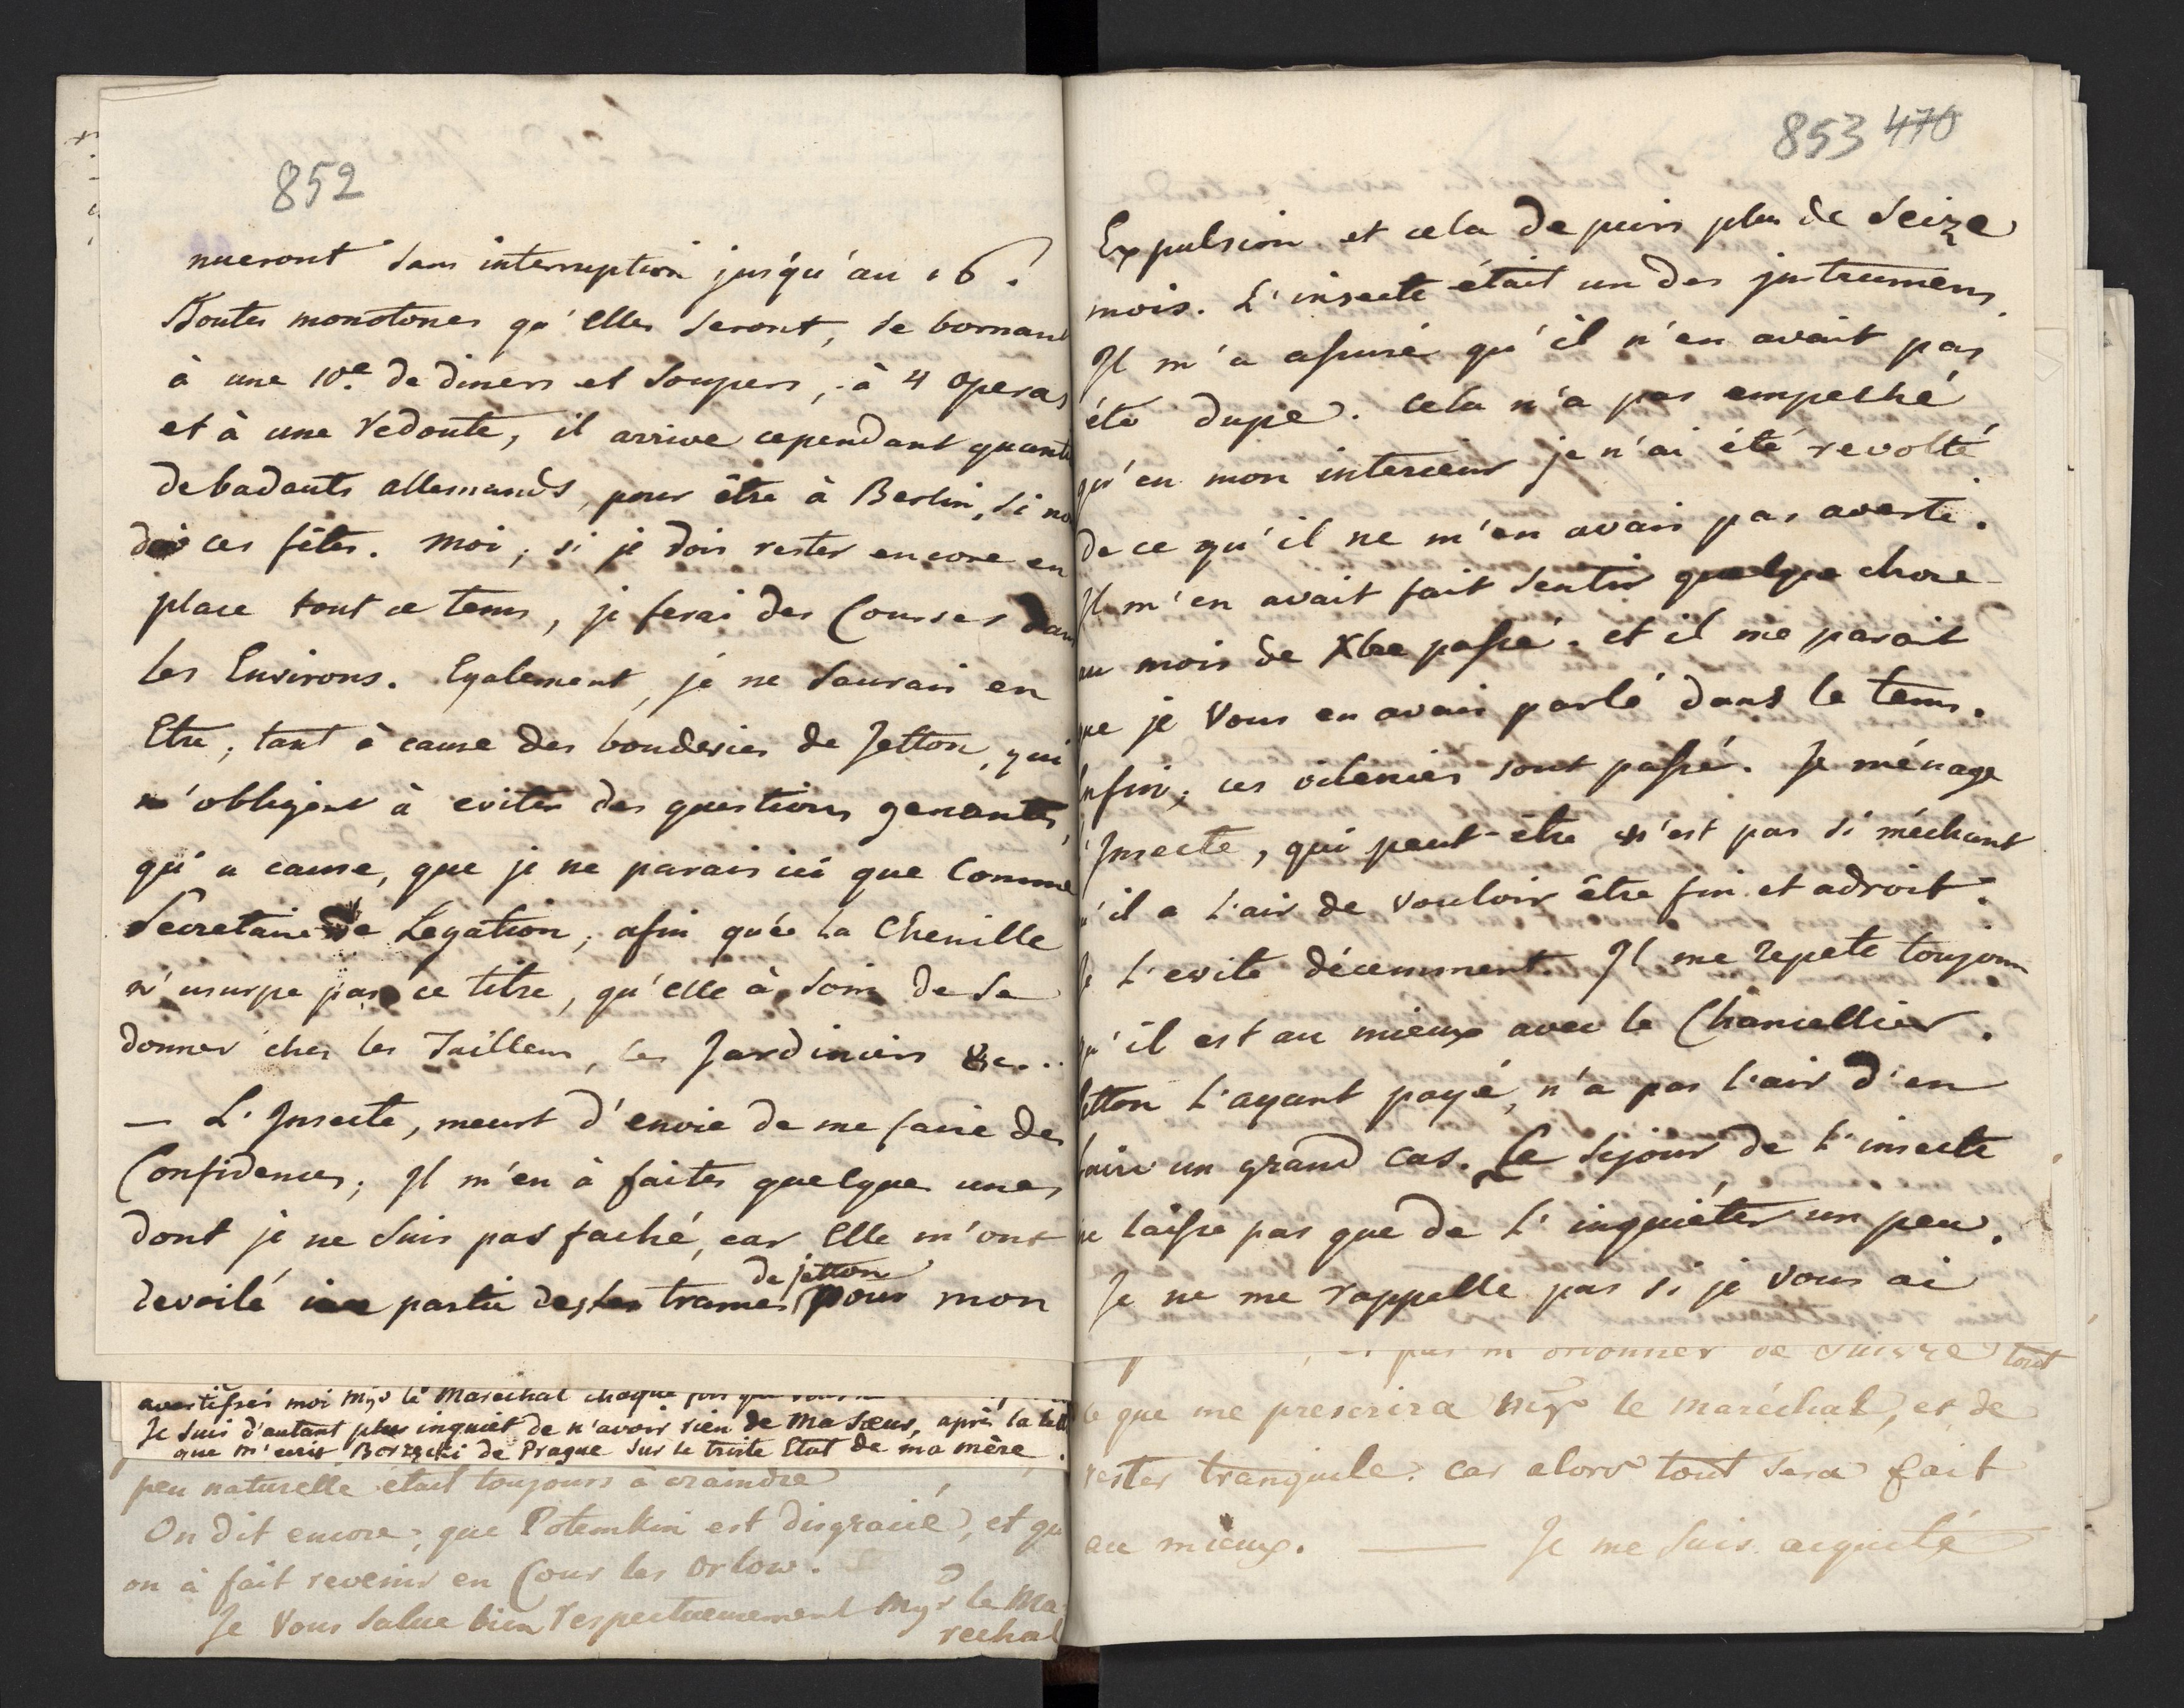 852
nueront sans interruption jusqu'au 16.
Toutes monotones qu'elles seront, se bornant
à une 10e. de diners et Soupers, à 4 operas
et à une redoute, il arrive cependant quantité
de badauts allemands, pour être à Berlin, si no
ces fêtes. Moi, si je dois rester encore en
place tout ce tems, je ferai des Courses dans
les Environs. Egalement, je ne saurais en
Etre, tant à cause des bouderies de Jetton, qui
m'obligent à eviter des questions genantes,
qu'a cause, que je ne parais ici que Comme
Secretaire de Legation, afin que la Chenille
n'usurpe pas ce titre, qu'elle à soin de se
donner chez les Tailleurs, les Jardiniers &c...
— L'Insecte, meurt d'envie de me faire des
Confidences; Il m'en à faites quelques unes
dont je ne suis pas faché, car Elle m'ont
de jetton
devoilé une partie des trames pour mon
avertissés moi Mgr le Marechal chaque fois que
Je suis d'autant plus inquiet de n'avoir rien de Ma Soeur, après la lett
que m'ecrit Borzecki de Prague sur le triste Etat de ma mère.
peu naturelle etait toujours à craindre
On dit encore, que Potemkin est disgracié, et qu
on à fait revenir en Cour les Orlow.
Je Vous salue bien respectueusement Mgr le Ma-
rechal
853 470
Expulsion et cela depuis plus de Seize
mois. L'insecte était un des instrumens
Il m'a assuré qu'il n'en avait pas
été dupe. Cela n'a pas empeché
qu'en mon interieur je n'ai été revolté
de ce qu'il ne m'en avais pas averti.
Il m'en avait fait sentir quelque chose
au mois de Xbre passé. et il me parait
que je Vous en avais parlé dans le tems.
Enfin, ces vilenies sont passé. Je ménage
l'Insecte, qui peut-être n'est pas si méchant
qu'il a l'air de vouloir être fin et adroit.
Je L'evite décemment. Il me repete toujours
qu'il est au mieux avec le Chancellier.
Jetton L'ayant payé, n'a pas l'air d'en
faire un grand cas. Le sejour de L'insecte
ne laisse pas que de L'inquiéter un peu.
Je ne me rappelle pas si je vous ai
pas m'ordonner de suivre tout
ce que me prescrira Mgr le maréchal, et de
rester tranquile. car alors tout sera fait
au mieux. — Je me suis acquité